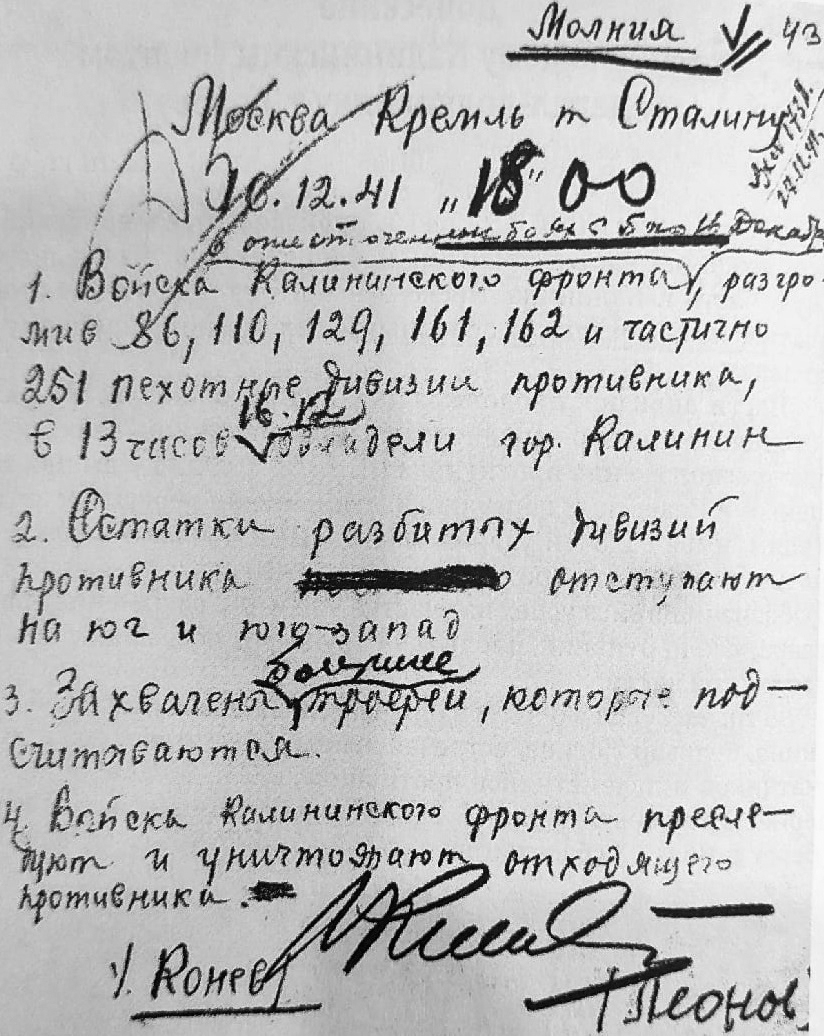 Молния 43
Москва Кремль т Сталину
16.12.41 „18" 00
в ожесточенных боях с по 16 декабря
1. Войска Калининского фронта, разгро-
мив 86, 110, 129, 161, 162 и частично
251 пехотные дивизии противника,
16.12
в 13 часов овладели гор. Калинин
2. Остатки разбитых дивизий
противника отступают
на юг и юго-запад
большие
3. Захвачены трофеи, которые под-
считываются.
4. Войска Калининского фронта пресле-
дуют и уничтожают отходящего
противника.
Конев
Леонов